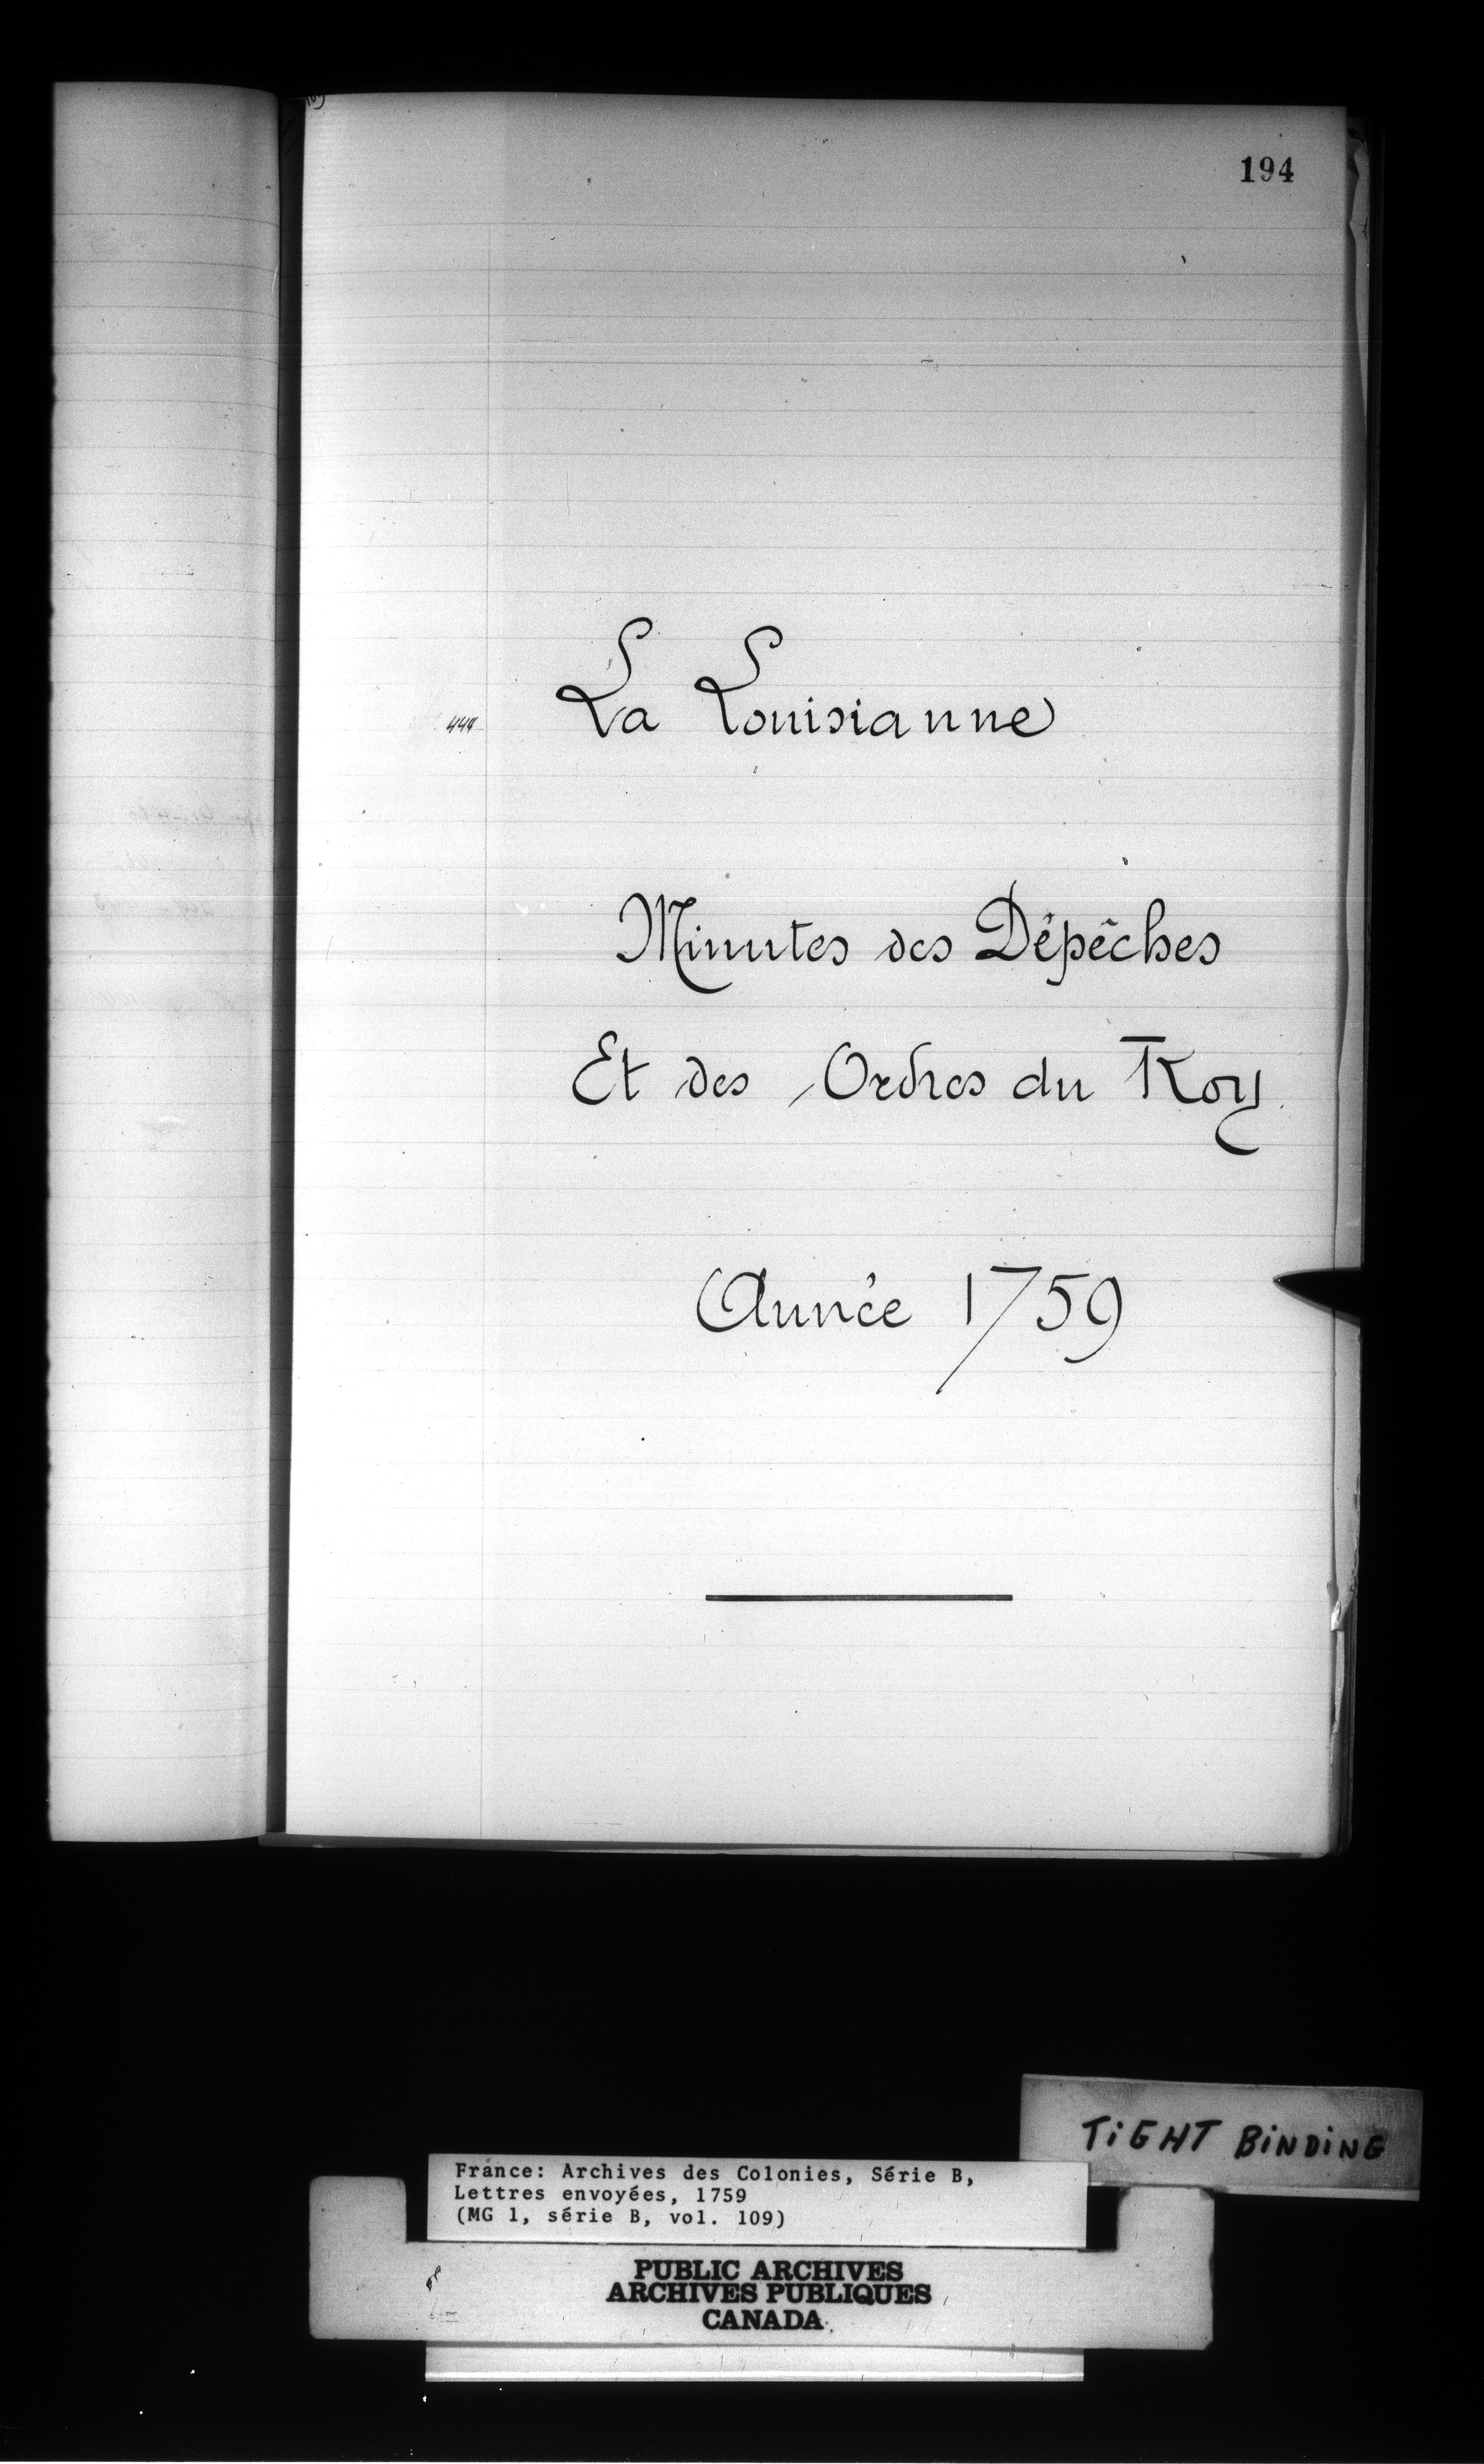 194
444
La Louisianne
Minutes des Dépêches
Et des Ordres du Roy
Année 1759
TiGHT BiNDiNG
France: Archives des Colonies, Série B,
Lettres envoyées, 1759
(MG 1, série B, vol. 109)
PUBLIC ARCHIVES
ARCHIVES PUBLIQUES
CANADA